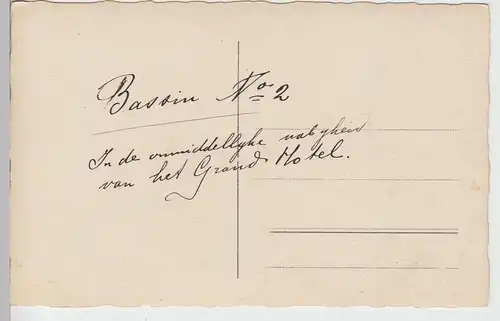 Bassin No 2
In de onmiddellyke nabyheid
van het Grand Hotel.